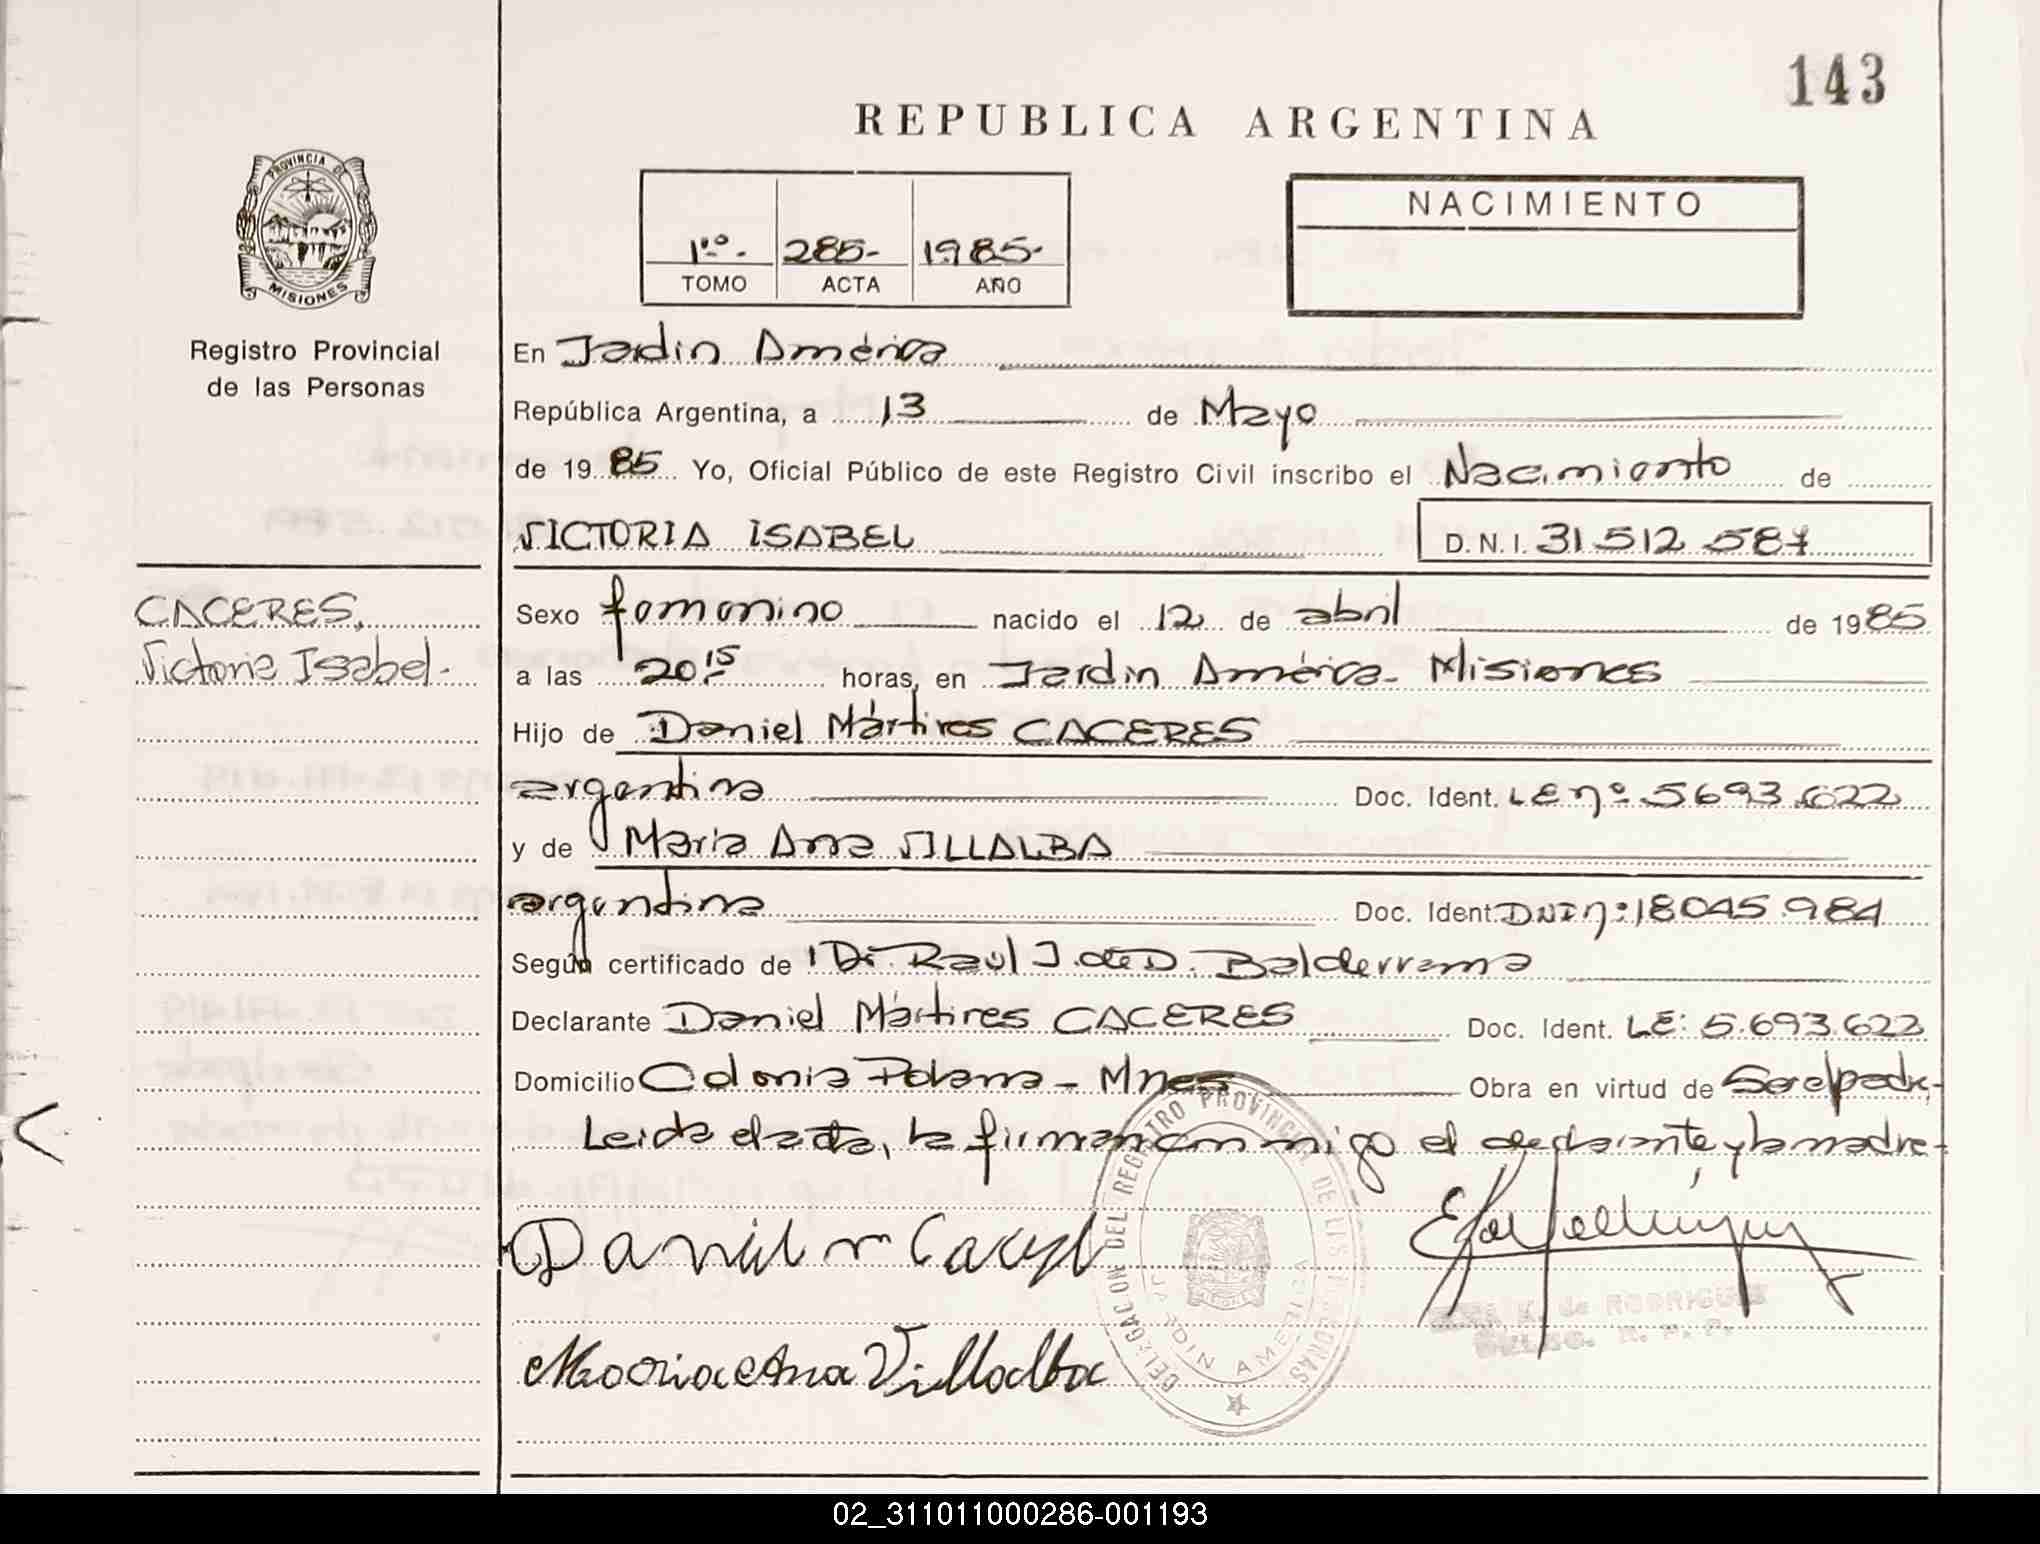 143
REPUBLICA ARGENTINA
PROVINCIA DE
MISIONES
Registro Provincial
de las Personas
1º.- 285- 1985-
TOMO ACTA AÑO
NACIMIENTO
En Jardin América
República Argentina, a 13 de Mayo
de 1985 Yo, Oficial Público de este Registro Civil inscribo el Nacimiento de
VICTORIA ISABEL D.N.I. 31 512 587
CACERES,
Victoria Isabel.-
Sexo femenino nacido el 12 de abril de 1985
a las 20.15 horas, en Jardin América- Misiones
Hijo de Daniel Mártires CACERES
argentina Doc. Ident. LE nº 5693.622
y de Maria Ana VILLALBA
argentina Doc. Ident. DNI nº 18045.984
Según certificado de Dr. Raúl J. de D. Balderrama
Declarante Daniel Mártires CACERES Doc. Ident. LE: 5.693.622
Domicilio Colonia Polana - Mnes Obra en virtud de Ser el padre,-
Leida el acta, la firman conmigo el declarante y la madre-
Daniel m
Maria Ana Villalba
DELEGACION DEL REGISTRO PROVINCIAL DE LAS PERSONAS
JARDIN AMERICA
de RODRIGUEZ
02_311011000286-001193